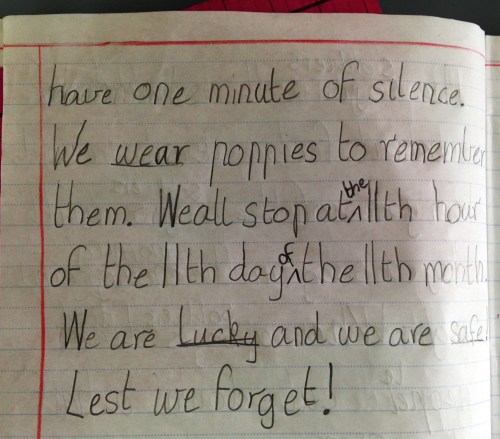 have one minute of silence.
We wear poppies to remember
them. We all stop at the 11th hour
of the 11th day of the 11th month.
We are Lucky and we are safe.
Lest we forget!